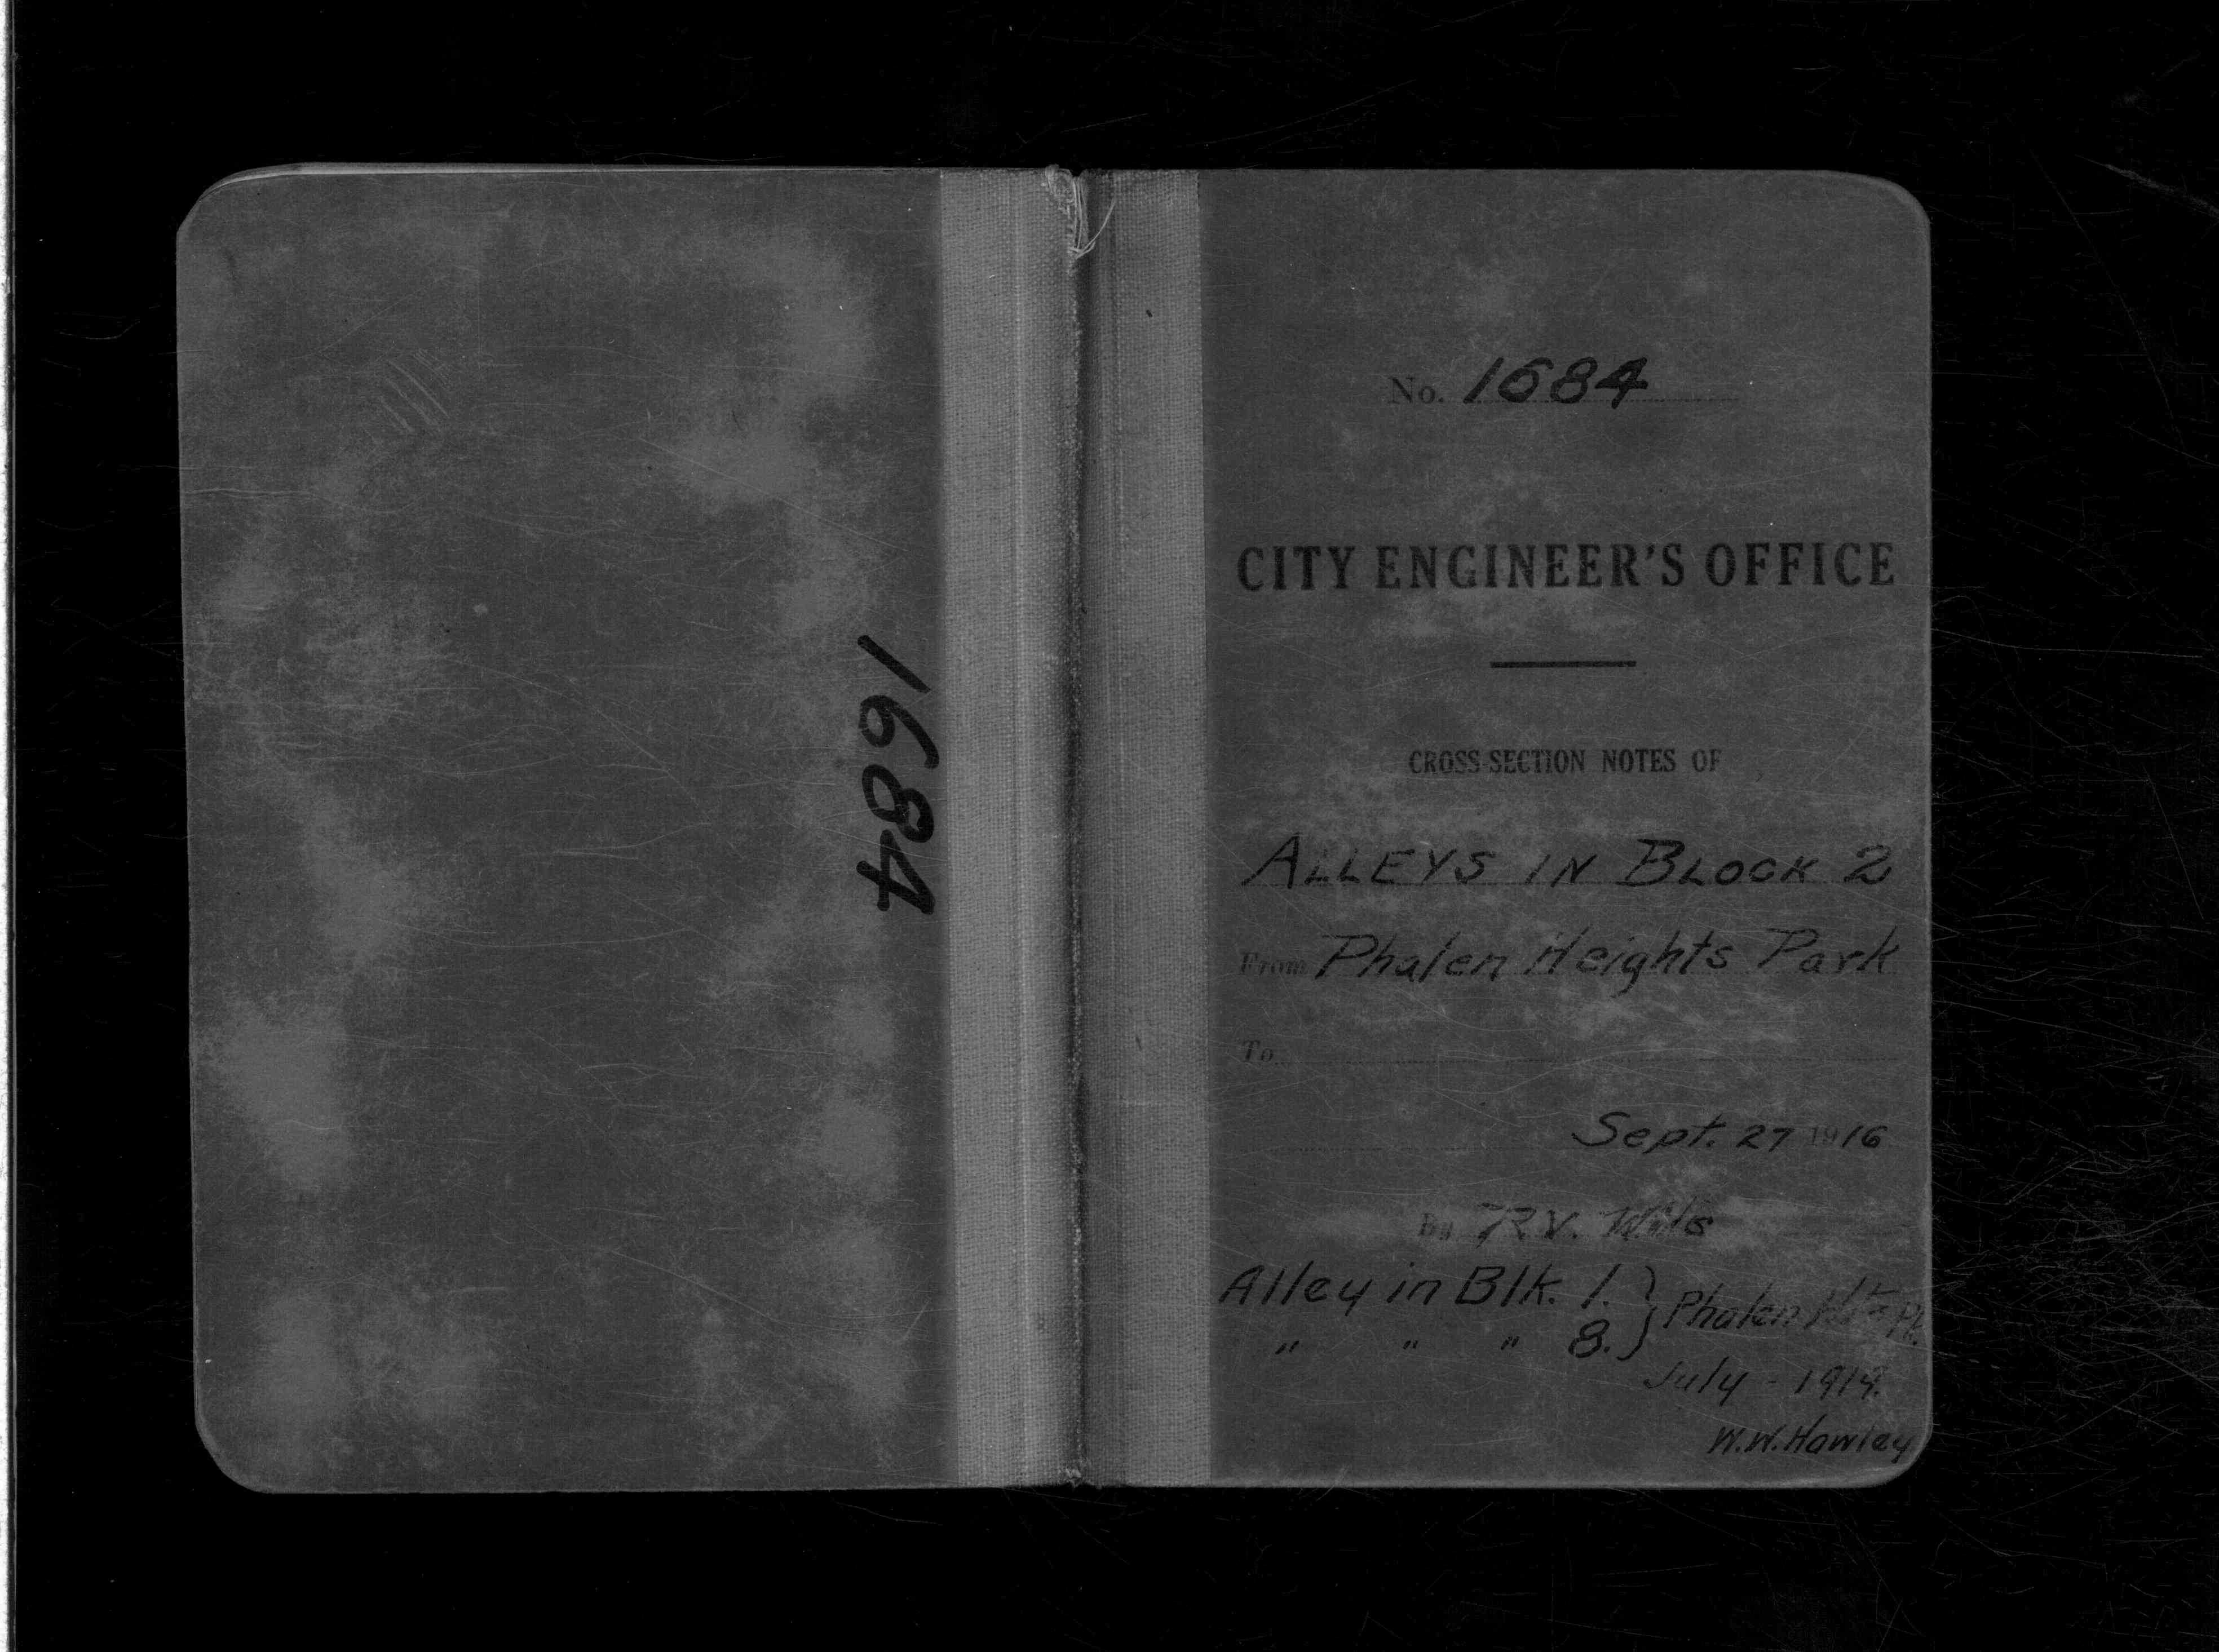 1684
No. 1684
CITY ENGINEER'S OFFICE
CROSS-SECTION NOTES OF
ALLEYS IN BLOCK 2
From Phalen Heights Park
To
Sept. 27 1916
By R.V.
Alley in Blk. 1. } Phalen Hts Pk.
" " " 8. }
July - 1919.
W.W. Hawley